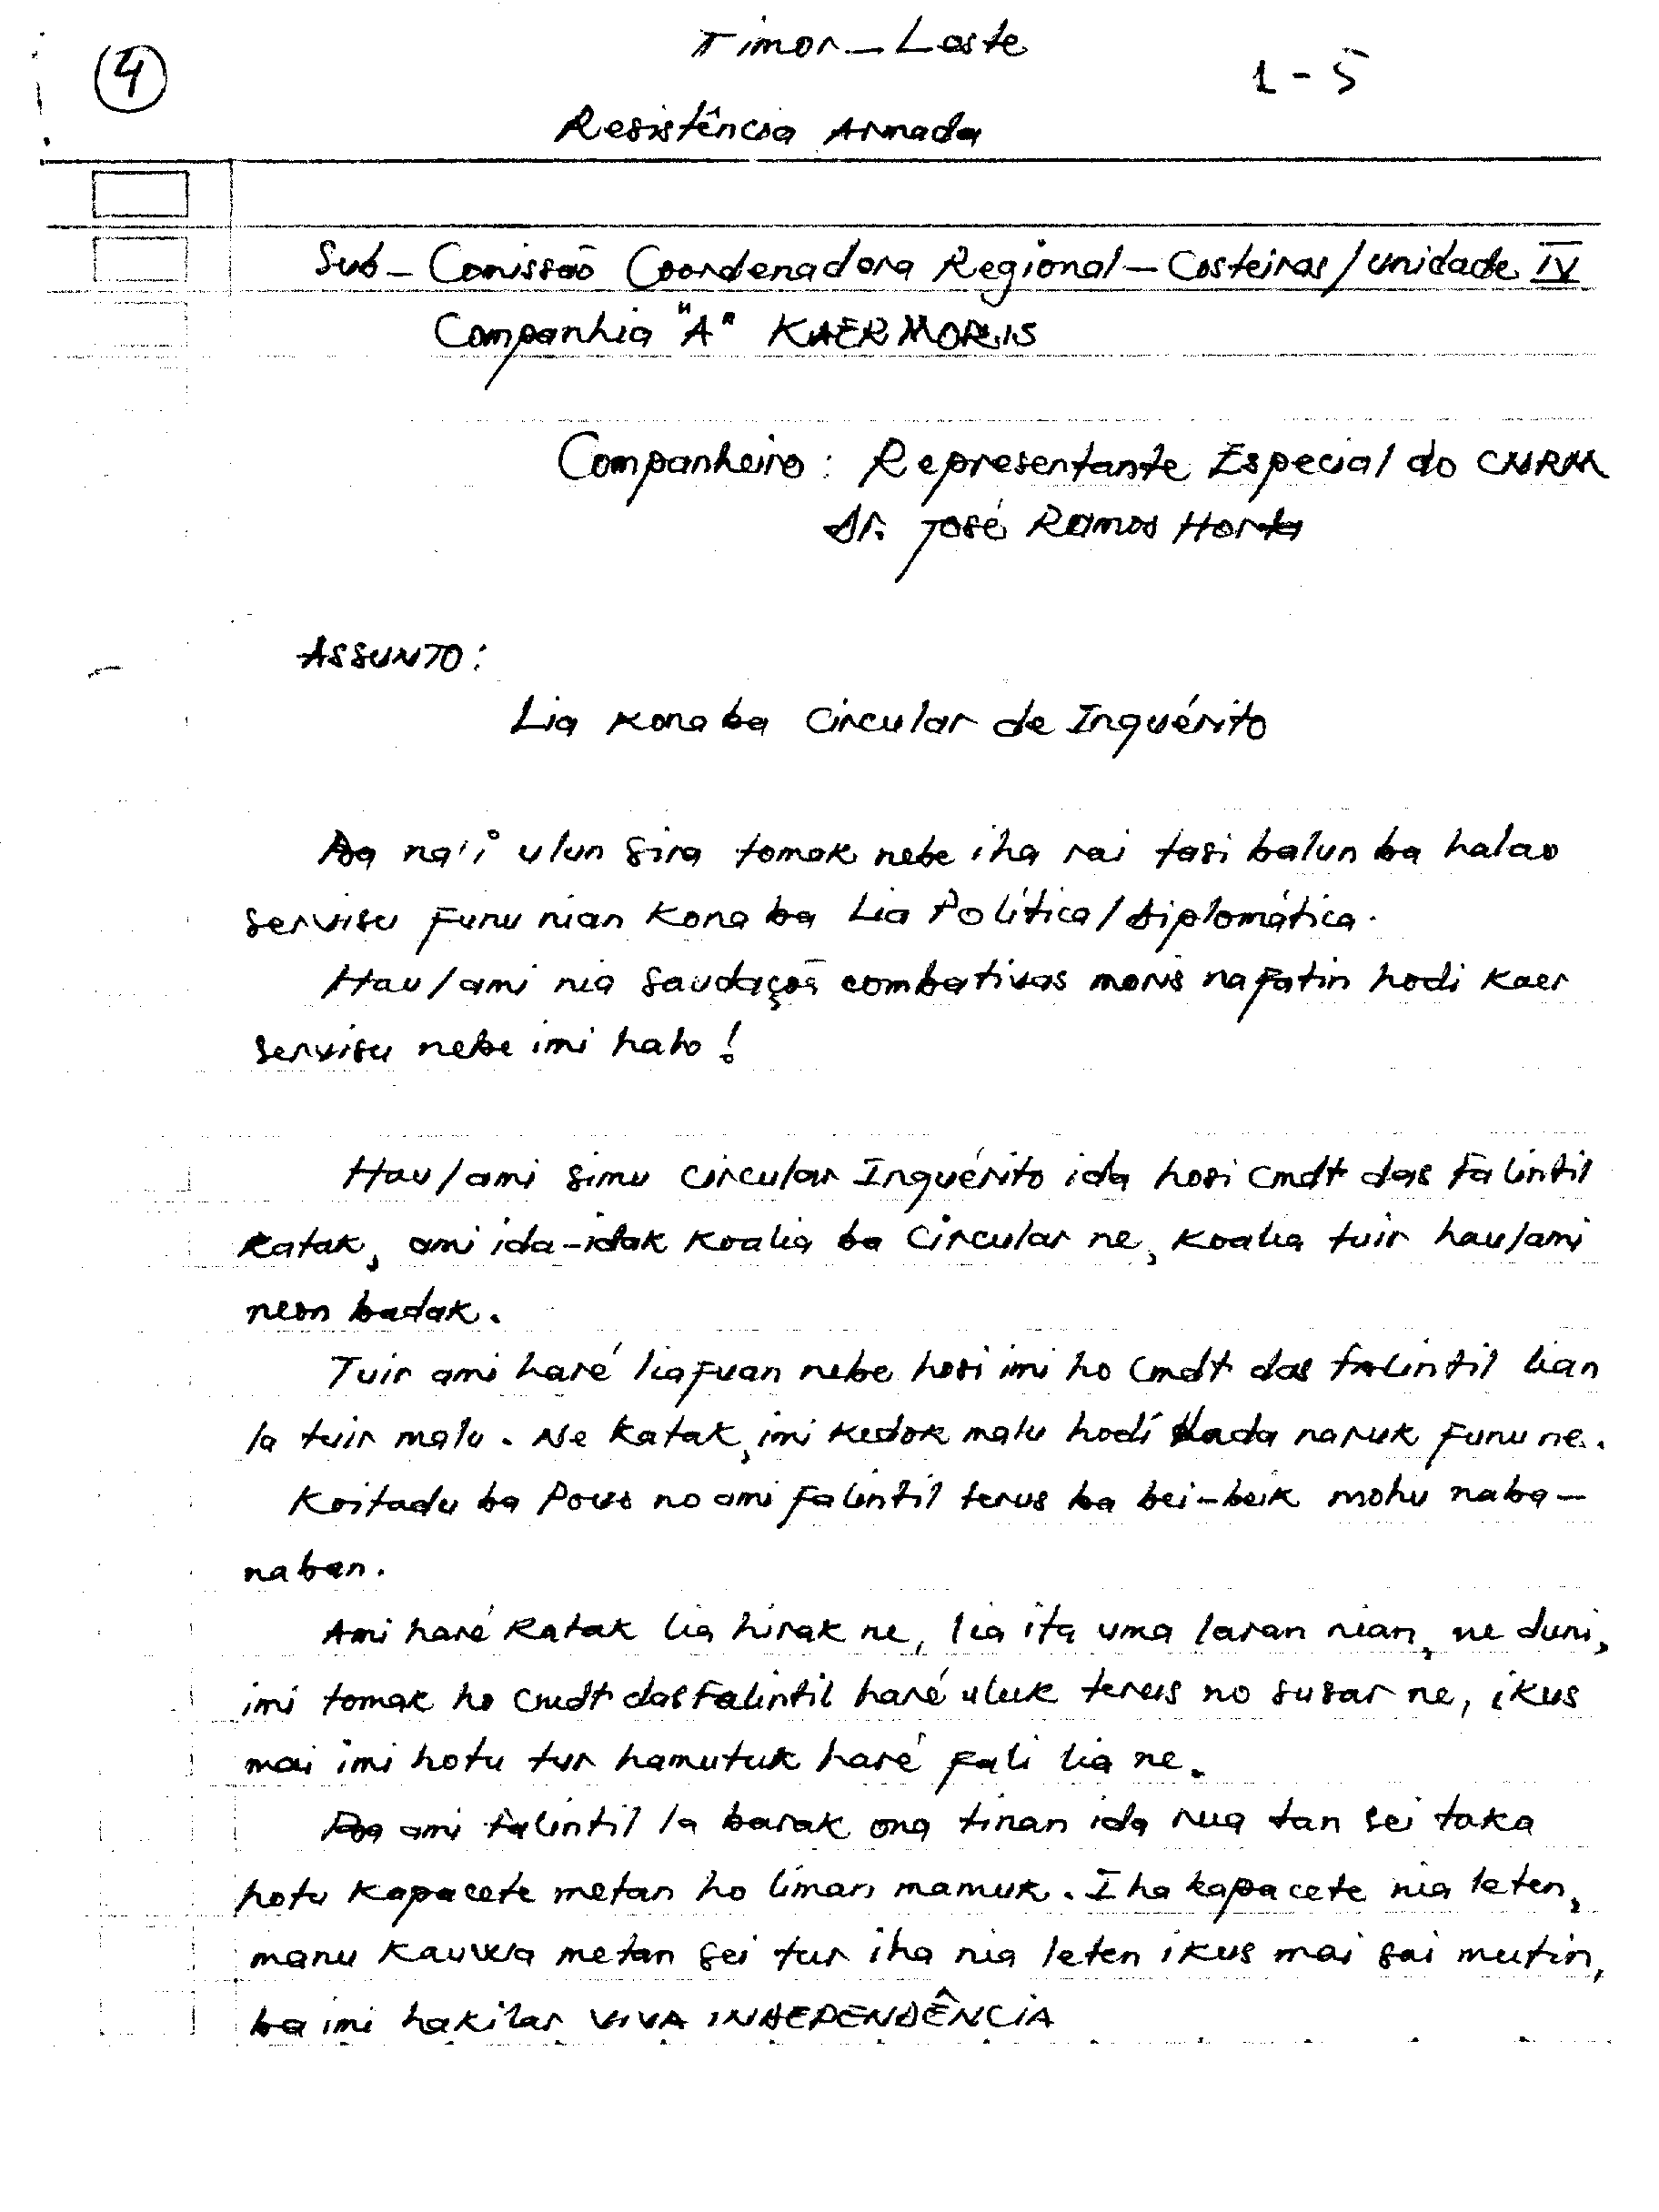 4
Timor-Leste
1-5
Resistência Armada
Sub-Comissão Coordenadora Regional-Costeiras/Unidade IV
Companhia "A" KAER MORIS
Companheiro: Representante Especial do CNRM
Dr. José Ramos Horta
ASSUNTO:
Lia kona ba Circular de Inquérito
Ba na'i ulun sira tomak nebe iha rai tasi balun ba halao
servisu funu nian kona ba Lia Política/Diplomática.
Hau/ami nia saudaçoã combativas moris nafatin hodi kaer
servisu nebe imi halo!
Hau/ami simu circular Inquérito ida hosi Cmdt das Falintil
katak, ami ida-idak koalia ba Circular ne, koalia tuir hau/ami
neon badak.
Tuir ami haré liafuan nebe hosi imi ho Cmdt das Falintil lian
la tuir malu. Ne katak, imi kedok malu hodi dada naruk funu ne.
Koitadu ba Povo no ami Falintil terus ba bei-beik mohu naba-
naban.
Ami haré katak lia hirak ne, lia ita uma laran nian, ne duni,
imi tomak ho Cmdt das Falintil haré uluk terus no susar ne, ikus
mai imi hotu tur hamutuk haré fali lia ne.
Ba ami Falintil la barak ona tinan ida rua tan sei taka
hotu kapacete metan ho liman mamuk. Iha kapacete nia leten,
manu kauwa metan sei tur iha nia leten ikus mai sai mutin,
ba imi hakilar VIVA INDEPENDÊNCIA